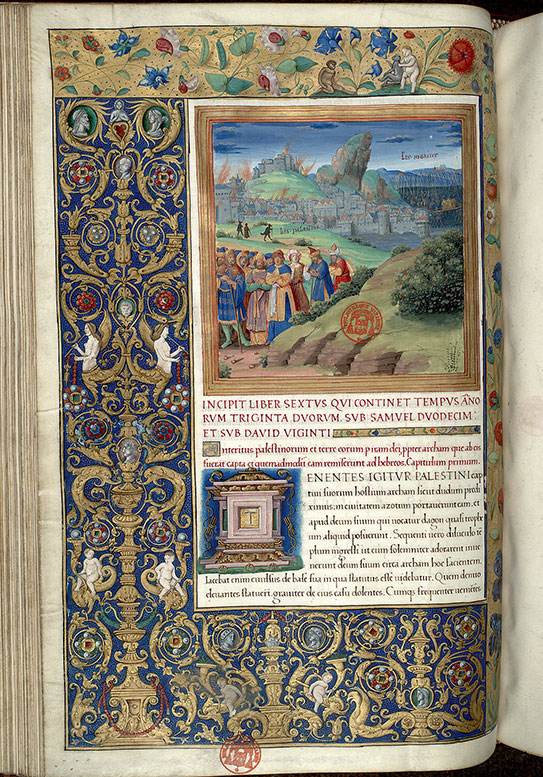 Les palestins
INCIPIT LIBER SEXTUS QUI CONTINET TEMPUS ANNO
RUM TRIGINTA DUORUM. SUB SAMUEL DUODECIM
ET SUB DAVID VIGINTI
Interitus palestinorum et terre eorum p iram dei ppter archam que ab eis
fuerat capta et quemadmodū eam remiserunt ad hebreos. Capitulum primum.
TENENTES IGITUR PALESTINI cap
tiui suorum hostium archam sicut dudum predi
ximus: in ciuitatem azotum portauerunt eam, et
apud deum suum qui uocatur dagon quasi trophe
um aliquod posuerunt. Sequenti uero diluculo tē
plum ingressi ut eum solemniter adorarent inue
nerunt deum suum circa archam hoc facientem.
Iacebat enim euulsus de base sua in qua statutus esse uidebatur. Quem denuo
eleuantes statuerūt, grauiter de eius casu dolentes. Cumq; frequenter uenientes